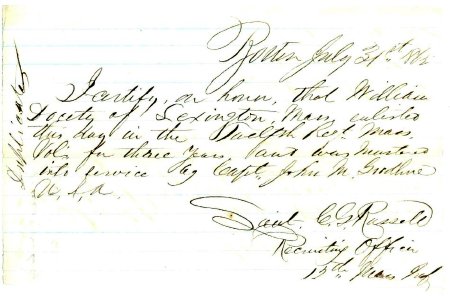 Boston July 31st 1862
I certify, on honor, that William
Docety of Lexington, Mass enlisted
this day in the Twelfth Regt. Mass
Vols for three years and was mustered
into service by Capt. John M. Goodhue
U.S.A.
Lieut. C.G. Russell
Recruiting Officer
12th Mass Inf
Duplicate